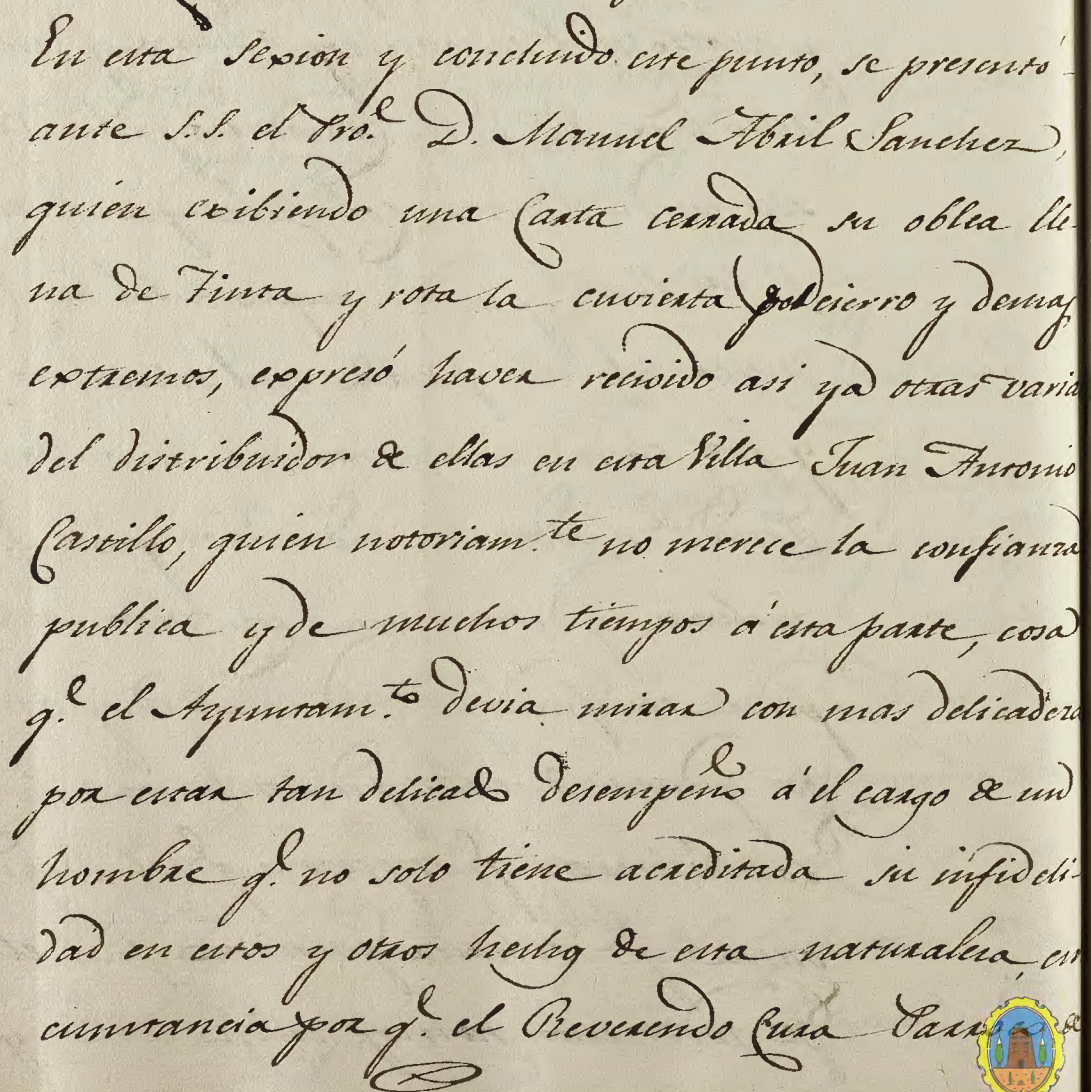 En esta Sexion y concluido este punto, se presentó
ante S.S. el Pro.^l D. Manuel Abril Sanchez,
quien exibiendo una Carta cerrada su oblea lle-
na de Tinta y rota la cuvierta del cierro y demas
extremos, expresó haver recivido asi ya otras varia
del distribuidor de ellas en esta Villa Juan Antonio
Castillo, quien notoriam.^te no merece la confianza
publica y de muchos tiempos á esta parte, cosa
q.^e el Ayuntam.^to devia mirar con mas delicadeza
por estar tan delicado desempeño á el cargo de un
hombre q.^e no solo tiene acreditada su infideli-
dad en estos y otros hechos de esta naturaleza, cir
cunstancia por q.^e el Reverendo Cura